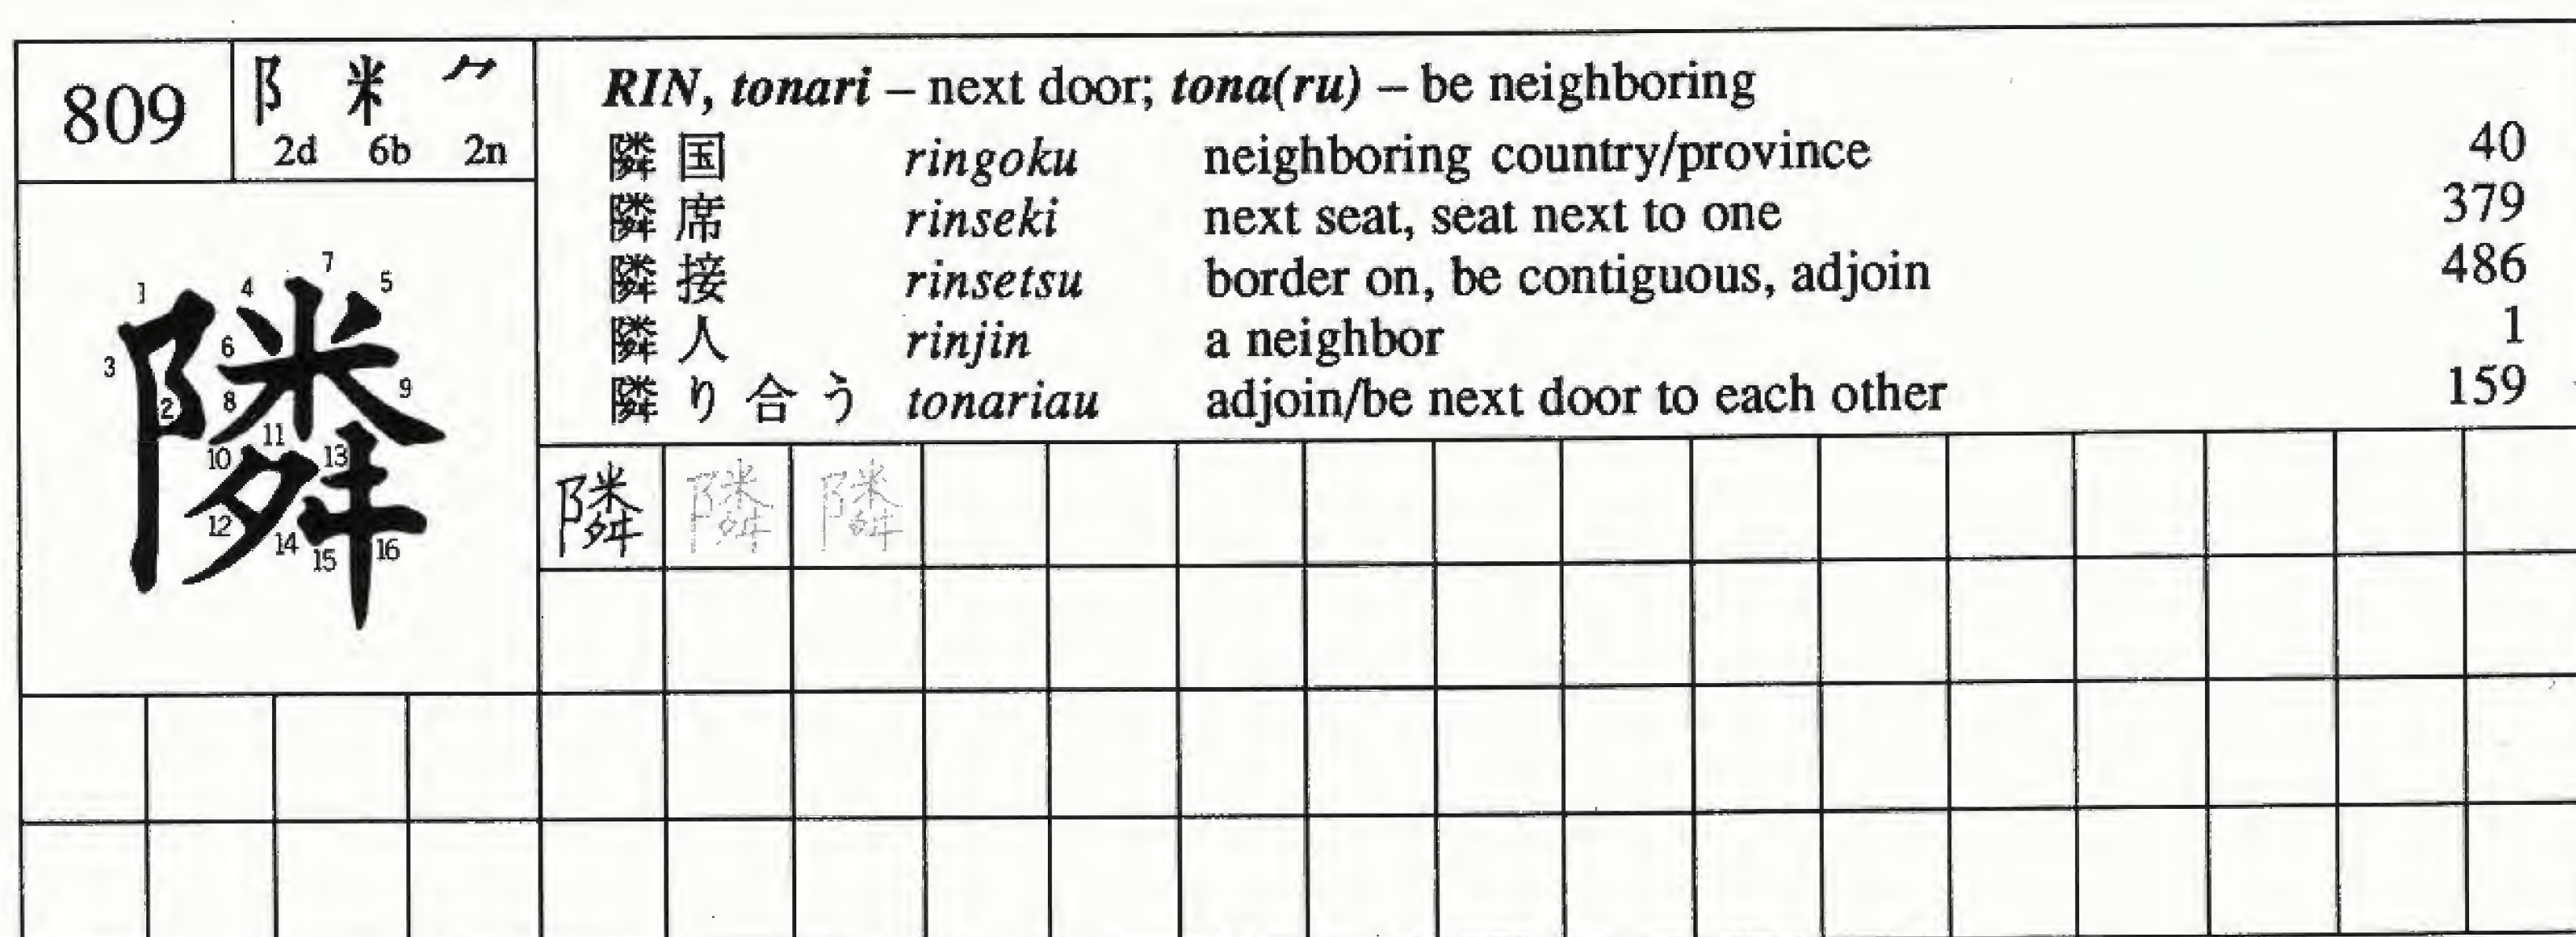 809
阝 米 ⺈
2d 6b 2n
RIN, tonari – next door; tona(ru) – be neighboring
隣国 ringoku neighboring country/province 40
隣席 rinseki next seat, seat next to one 379
隣接 rinsetsu border on, be contiguous, adjoin 486
隣人 rinjin a neighbor 1
隣り合う tonariau adjoin/be next door to each other 159
隣
1 2 3 4 5 6 7 8 9 10 11 12 13 14 15 16
隣 隣 隣